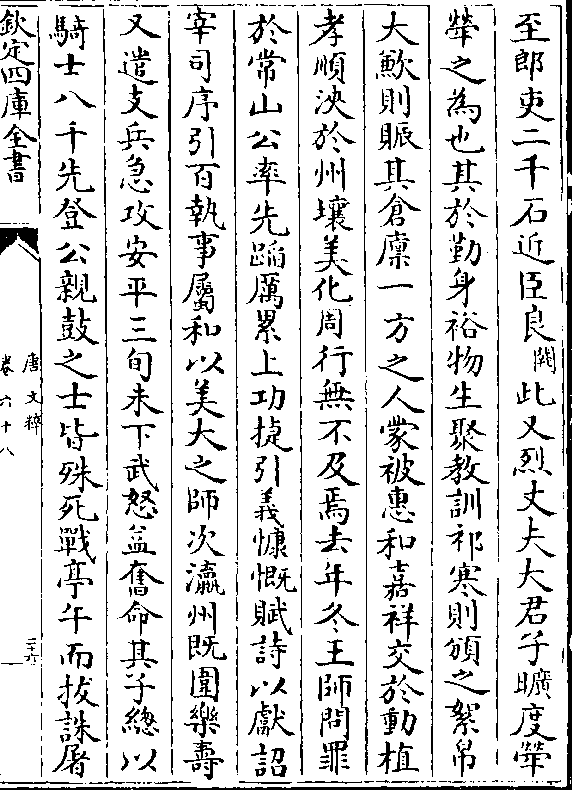 至郎吏二千石近臣良闕此又烈丈夫大君子曠度犖
犖之為也其於勤身裕物生聚教訓祁寒則頒之絮帛
大歉則賑其倉廩一方之人蒙被惠和嘉祥交於動植
孝順浹於州壤美化周行無不及焉去年冬王師問罪
於常山公率先蹈厲累上功捷引義慷慨賦詩以獻詔
宰司序引百執事屬和以美大之師次瀛州既圍樂壽
又遣支兵急攻安平三旬未下武怒益奮命其子總以
騎士八千先登公親鼓之士皆殊死戰亭午而拔誅屠
欽定四庫全書
唐文粹
卷六十八